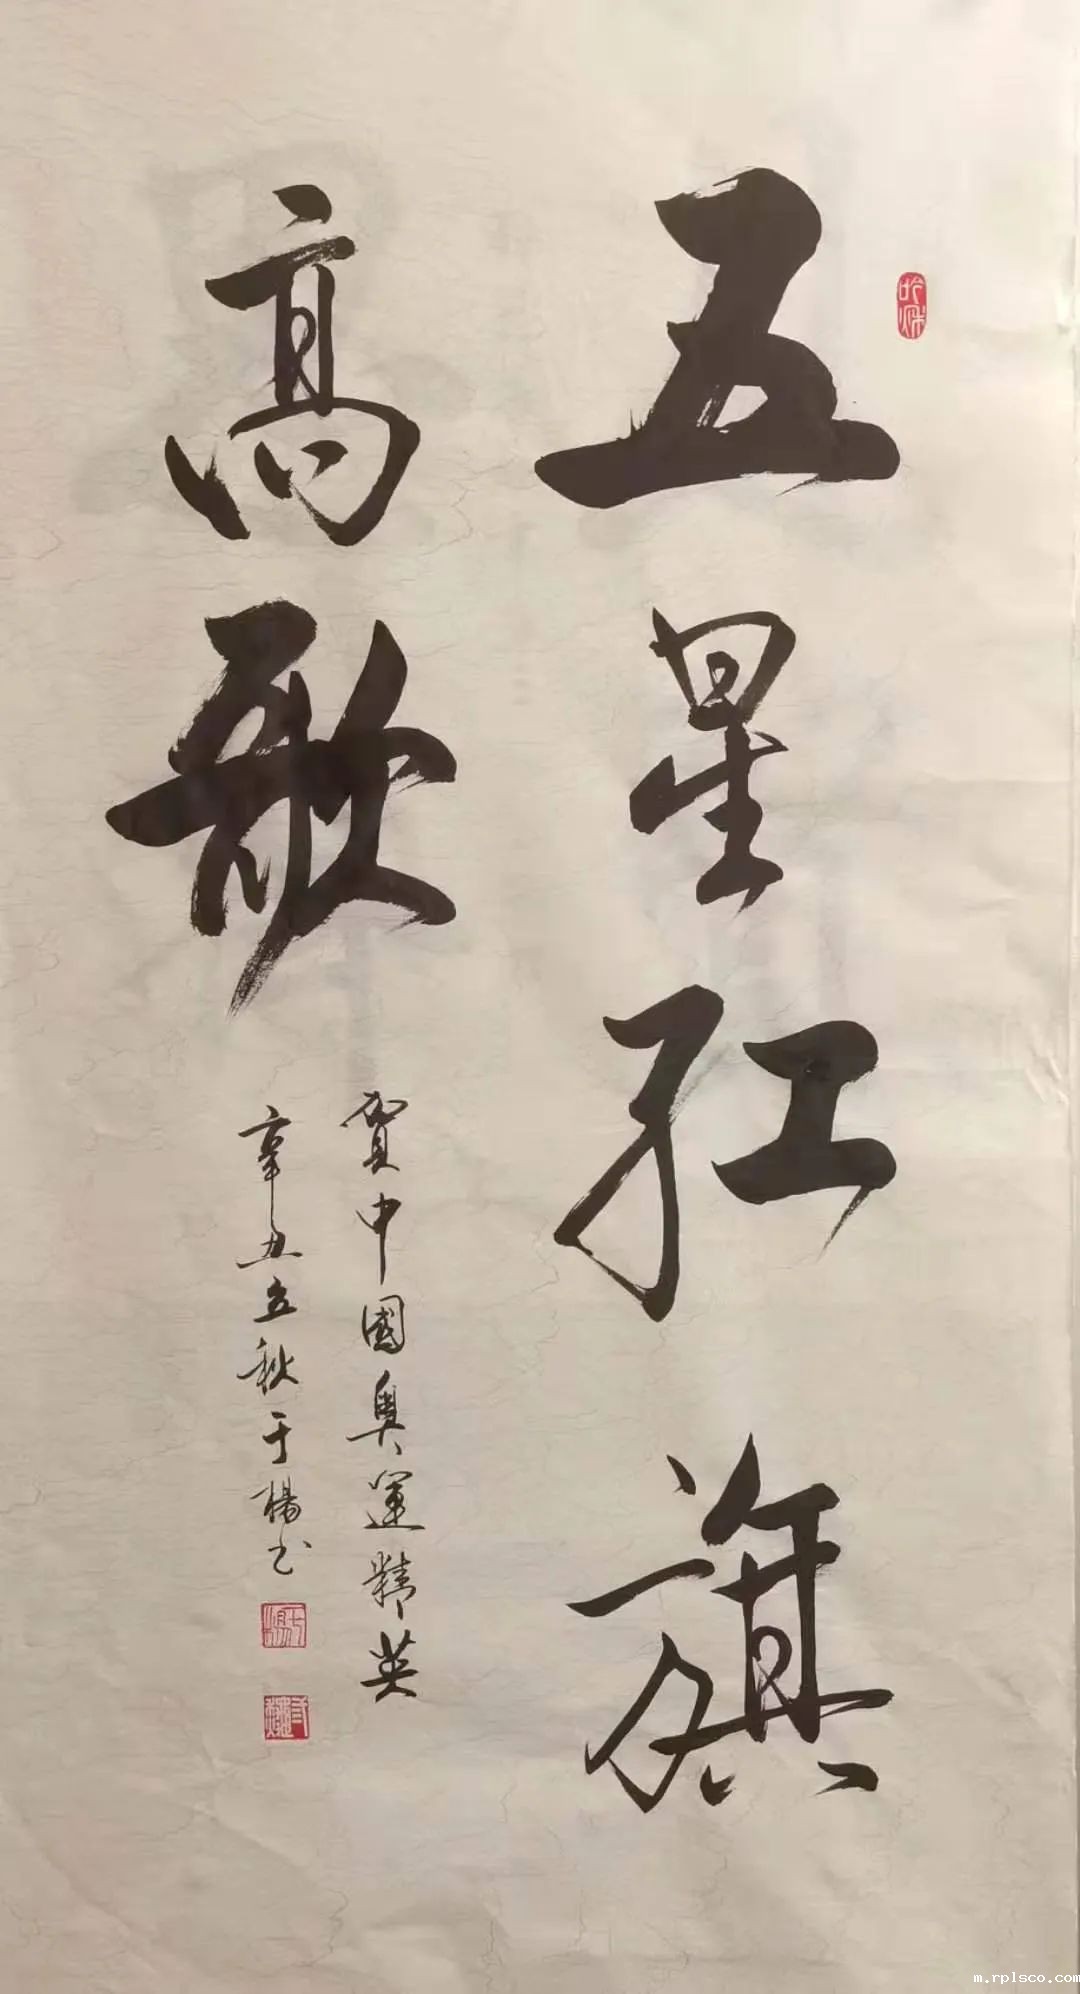 五星红旗
高歌
賀中國奥運精英
辛丑立秋于楊书
m.rplsco.com